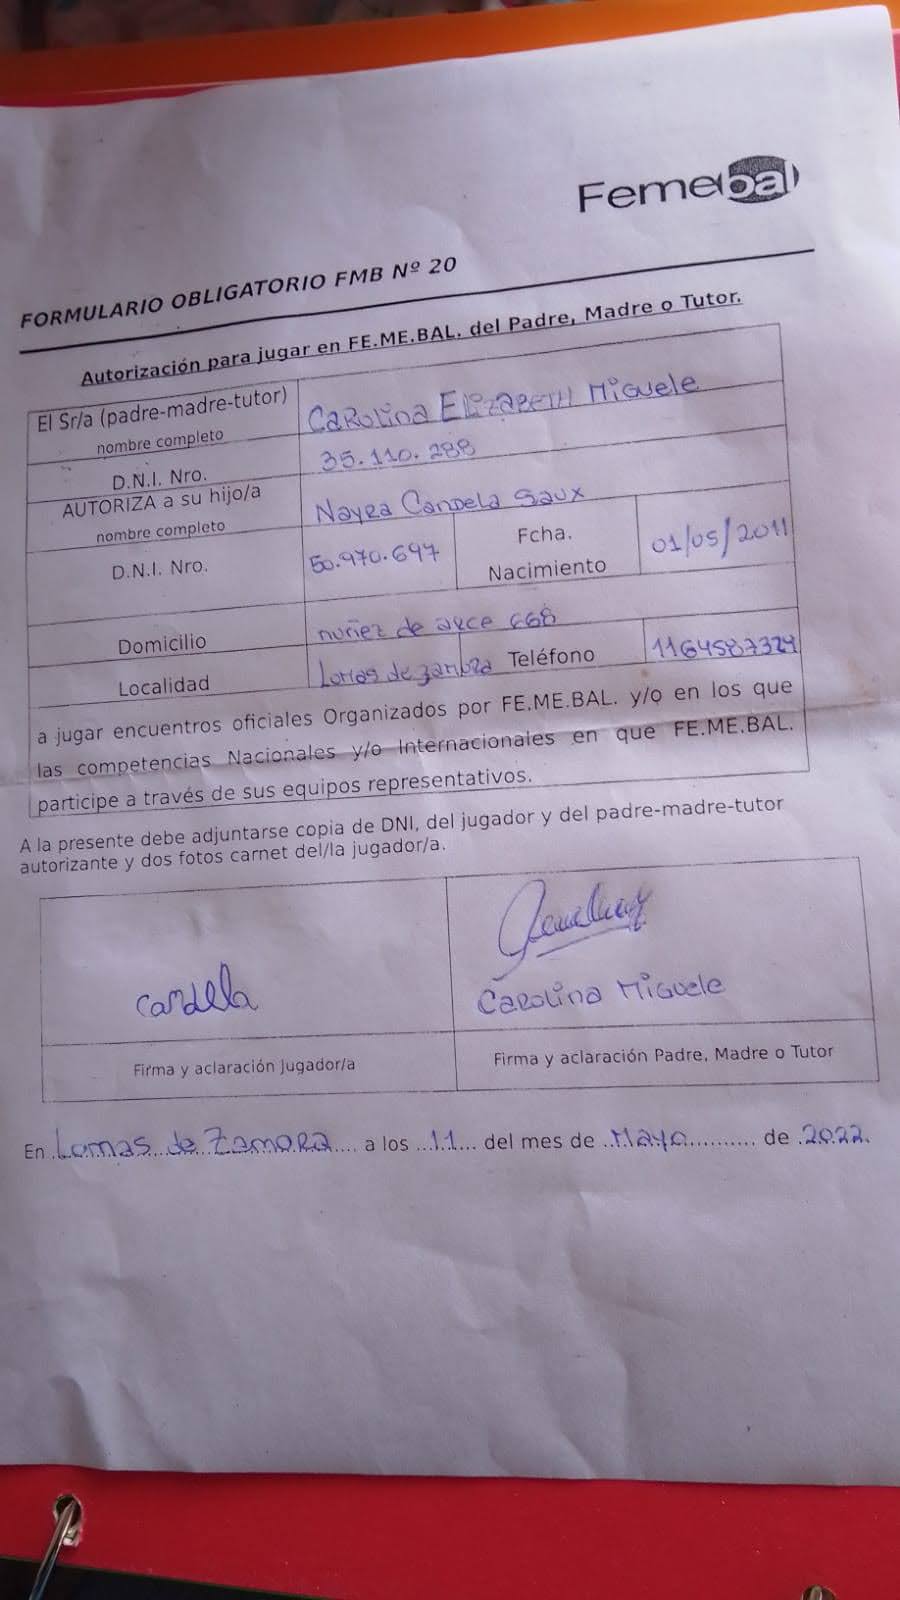 Femebal
FORMULARIO OBLIGATORIO FMB Nº 20
Autorización para jugar en FE.ME.BAL. del Padre, Madre o Tutor.
El Sr/a (padre-madre-tutor) nombre completo Carolina Elizabeth Miguele
D.N.I. Nro. 35.110.288
AUTORIZA a su hijo/a nombre completo Nayra Candela Saux
D.N.I. Nro. 50.970.697 Fcha. Nacimiento 01/05/2011
Domicilio nuñez de arce 668
Localidad Lomas de zamora Teléfono 1164587324
a jugar encuentros oficiales Organizados por FE.ME.BAL. y/o en los que
las competencias Nacionales y/o Internacionales en que FE.ME.BAL.
participe a través de sus equipos representativos.
A la presente debe adjuntarse copia de DNI, del jugador y del padre-madre-tutor
autorizante y dos fotos carnet del/la jugador/a.
Candela
Carolina Miguele
Firma y aclaración Jugador/a
Firma y aclaración Padre, Madre o Tutor
En Lomas de Zamora a los 11 del mes de Mayo de 2022.